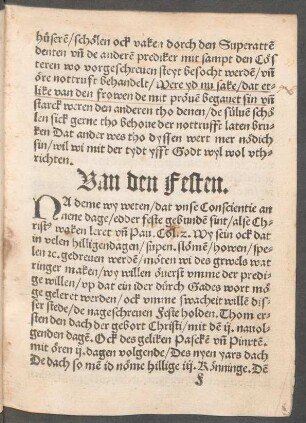 hüserē/ schölen ock vaken dorch den Superattē
denten vn̄ de anderē prediker mit sampt den Cös
teren wo vorgeschreuen steyt besocht werdē/ vn̄
öre nottruft behandelt/ Were yd nu sake/ dat et=
like van den frowen de mit pröuē begauet sin vn̄
starck weren den anderen tho denen/ de süluē schö
len sick gerne tho behoue der nottrufft laten bru
ken Dat ander wes tho dyssen wert mer nödich
sin/ wil wi mit der tydt ysst Godt wyl wol vth=
richten.
Van den Festen.
NA deme wy weten/ dat vnse Conscientie an
nene dage/ edder feste gebundē sint/ alse Ch
rist9 vaken leret vn̄ Pau. Col. 2. Wy sein ock dat
in velen hilligendagen/ supen, slömē/ howen/ spe
len ⁊c. gedreuen werdē/ mören wi des grwels wat
ringer maken/ wy willen öuerst vmme der predie
ge willen/ vp dat ein ider dürch Gades wort mö
ge geleret werden/ ock vmme swacheit willē dis
ser stede/ de nageschreuen Feste holden. Thom er
sten den dach der gebort Christi/ mit dē ij. nauol
genden dagē. Ock des geliken Paschē vn̄ Pinxtē
mit ören ij. dagen volgende/ Des nyen yars dach
De dach so mē id nöme hillige iij. Könninge. Dē
F